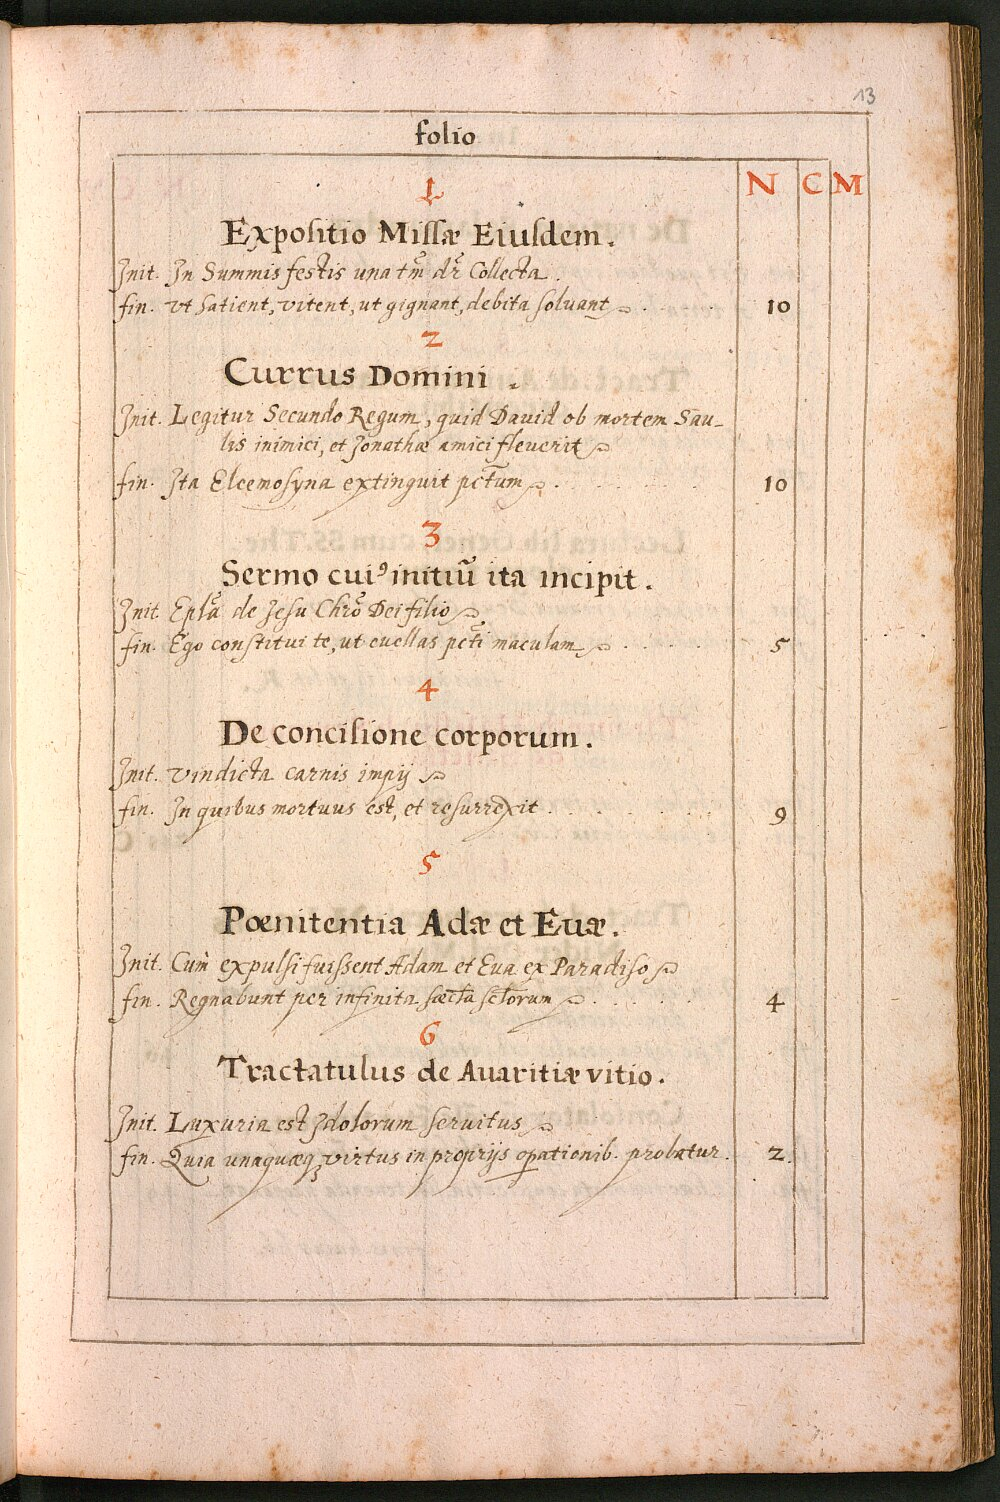 13
folio
N C M
1
Expositio Missæ Eiusdem.
Init. In Summis festis una tm̃ dr̃ Collecta.
fin. vt Satient, vitent, ut gignant, debita soluant. 10
2
Currus Domini.
Init. Legitur Secundo Regum, quid Dauid ob mortem Sau-
lis inimici, et Jonathæ amici fleuerit
fin. Ita Eleemosyna extinguit pctũm. 10
3
Sermo cuiꝰ initiũ ita incipit.
Init. Epl̃a de Jesu Chrõ Dei filio
fin. Ego constitui te, ut euellas pcti maculam 5
4
De concisione corporum.
Init. Vindicta carnis impij
fin. In quibus mortuus est, et resurrexit. 9
5
Pœnitentia Adæ et Euæ.
Init. Cùm expulsi fuissent Adam et Eua ex Paradiso
fin. Regnabunt per infinita sæcl̃a scl̃orum 4
6
Tractatulus de Auaritiæ vitio.
Init. Luxuria est Idolorum seruitus
fin. Quia unaquæqꝫ virtus in proprijs oꝑationib. probatur. 2.